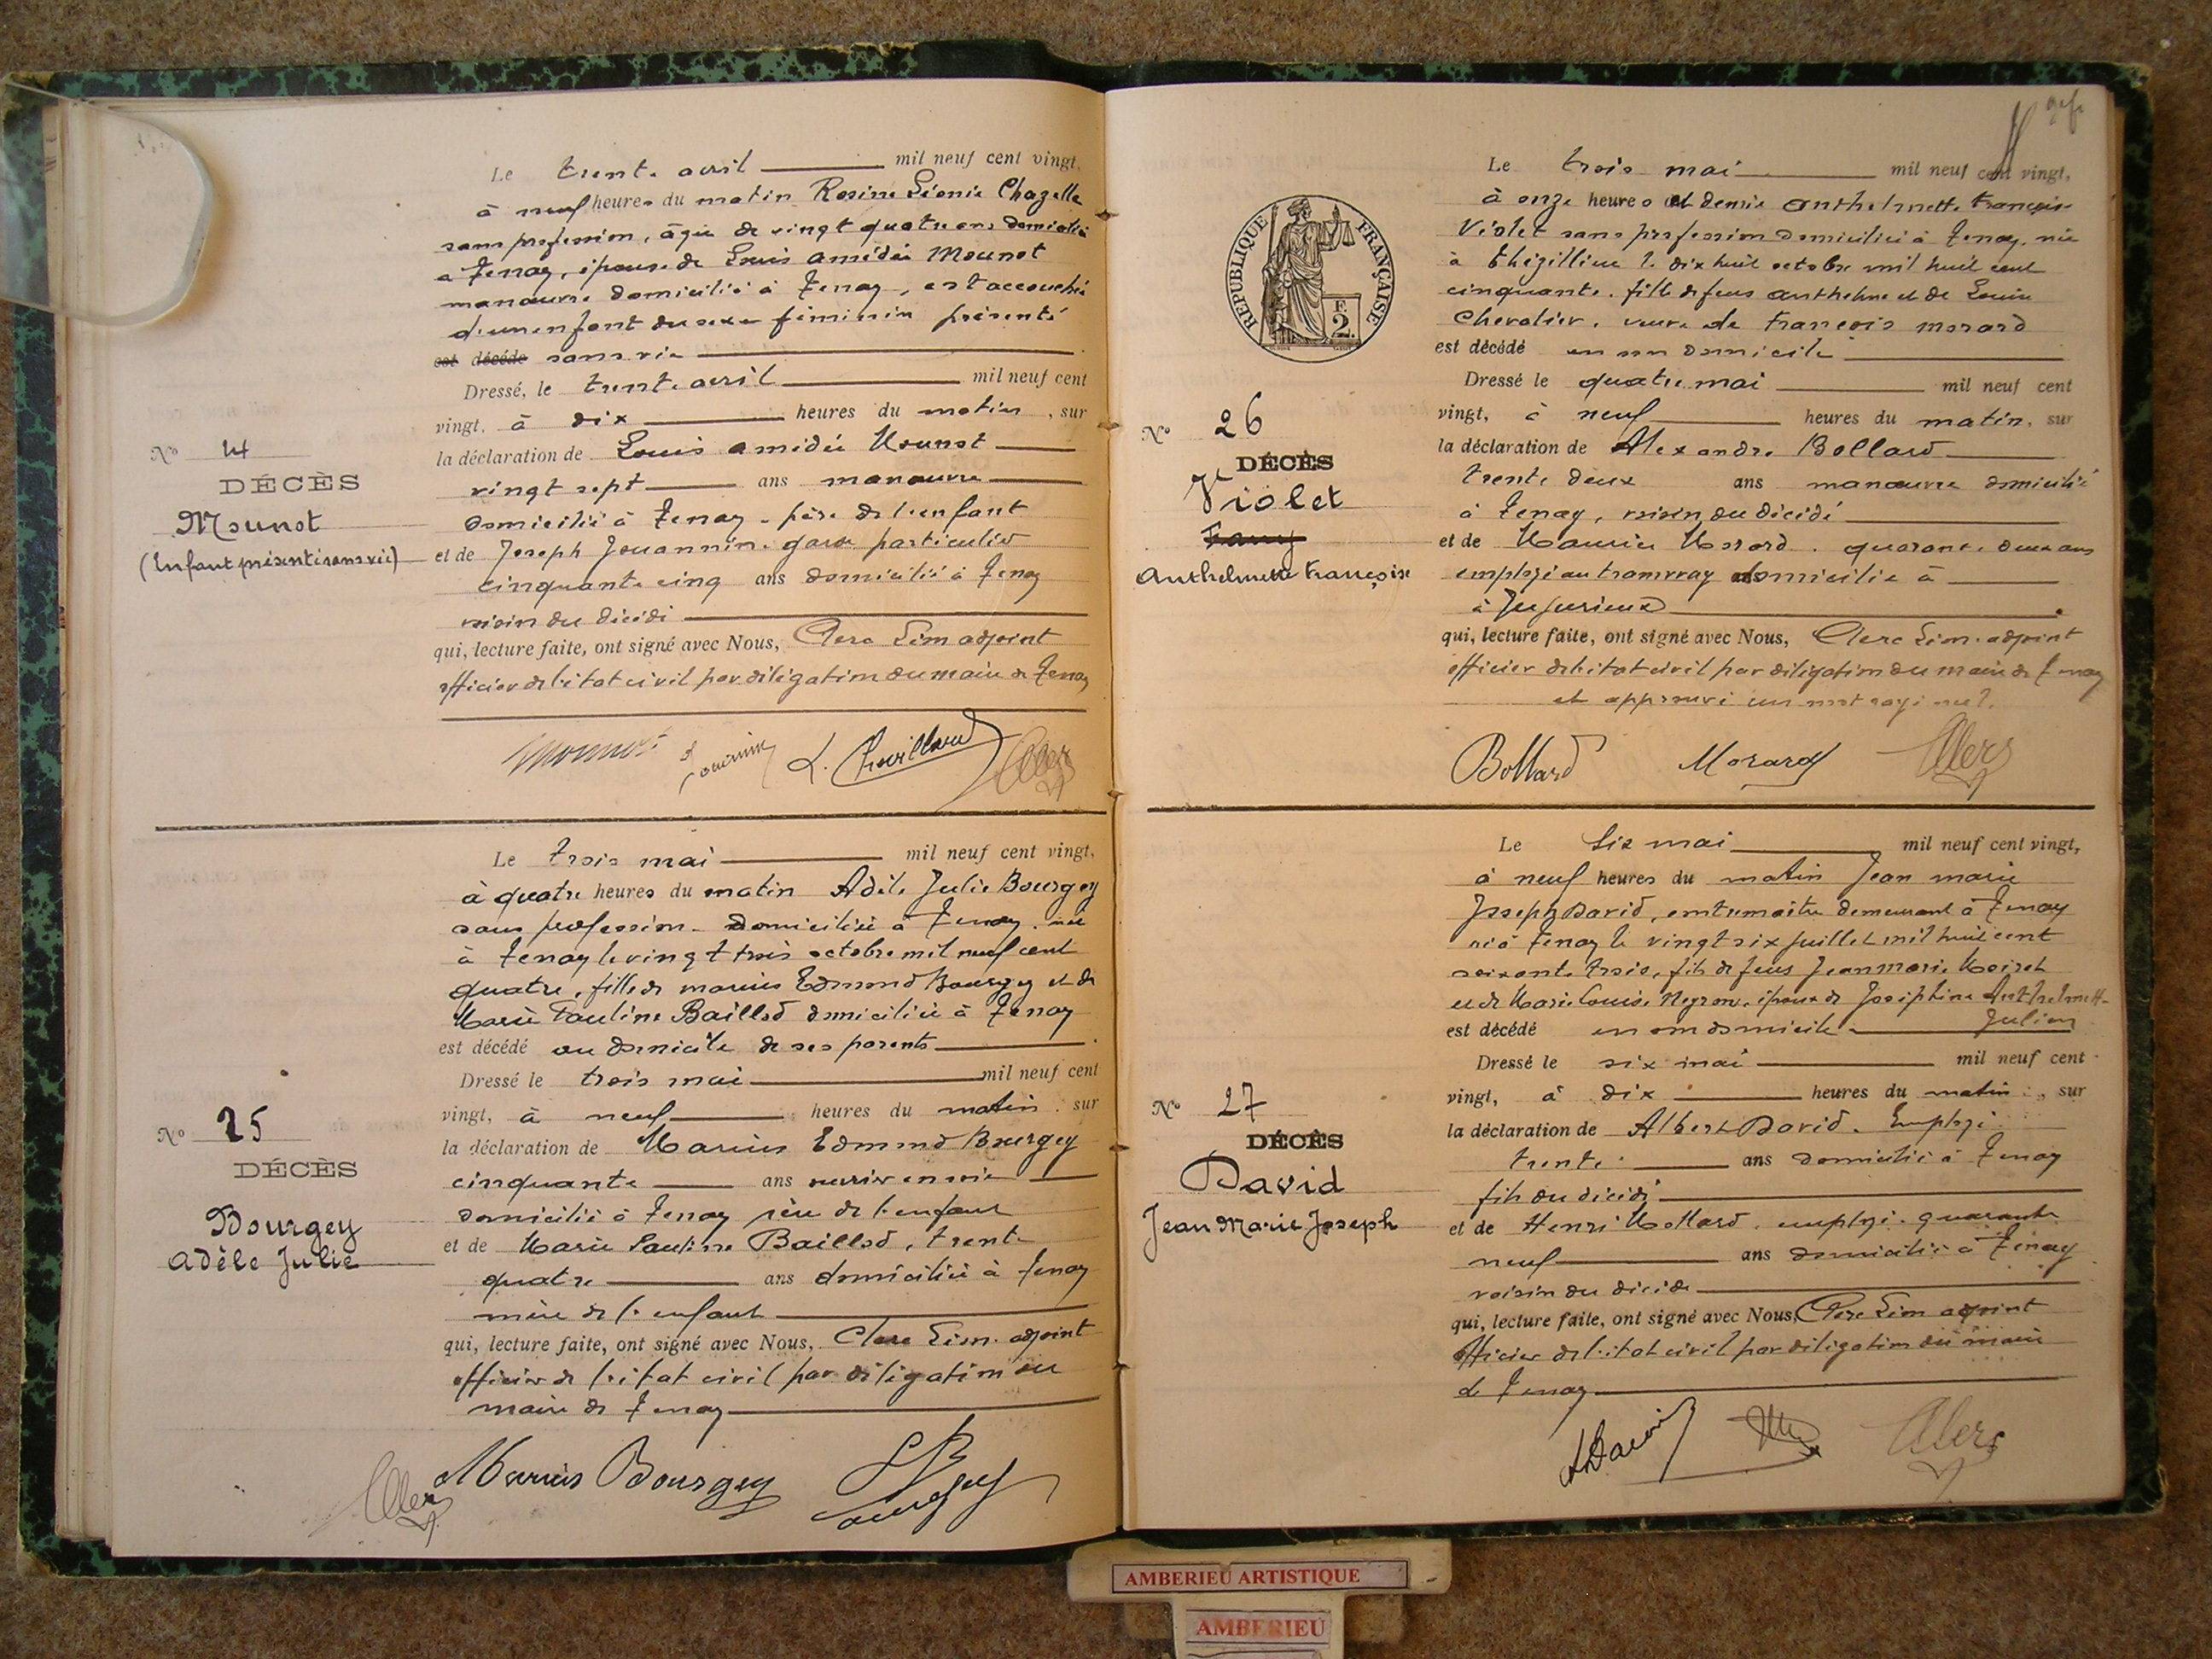 Le trente avril mil neuf cent vingt,
à neuf heures du matin Rosine Léonie Chazelle
sans profession, âgée de vingt quatre ans domiciliée
à Tenay, épouse de Louis Amédée Mounot
manœuvre domicilié à Tenay, est accouchée
d'un enfant du sexe féminin présenté
est décédé sans vie
Dressé, le trente avril mil neuf cent
vingt, à dix heures du matin, sur
la déclaration de Louis Amédée Mounot
vingt sept ans manœuvre
domicilié à Tenay, père de l'enfant
et de Joseph Jouannin, garde particulier
cinquante cinq ans domicilié à Tenay
voisin du décédé
qui, lecture faite, ont signé avec Nous, Clerc Léon adjoint
officier de l'état civil par délégation du maire de Tenay
Nº 24
DÉCÈS
Mounot
(Enfant présenté sans vie)
Le trois mai mil neuf cent vingt,
à quatre heures du matin Adèle Julie Bourgey
sans profession domiciliée à Tenay, née
à Tenay le vingt trois octobre mil neuf cent
quatre, fille de Marius Edmond Bourgey et de
Marie Pauline Baillod domiciliée à Tenay
est décédé au domicile de ses parents
Dressé le trois mai mil neuf cent
vingt, à neuf heures du matin, sur
la déclaration de Marius Edmond Bourgey
cinquante ans ouvrier en soie
domicilié à Tenay père de l'enfant
et de Marie Pauline Baillod, trente
quatre ans domiciliée à Tenay
mère de l'enfant
qui, lecture faite, ont signé avec Nous, Clerc Léon adjoint
officier de l'état civil par délégation du
maire de Tenay
Nº 25
DÉCÈS
Bourgey
Adèle Julie
Clerc Marius Bourgey
RÉPUBLIQUE FRANÇAISE
F.
2.
Le trois mai mil neuf cent vingt,
à onze heures et demie Anthelmette Françoise
Violet sans profession domiciliée à Tenay, née
à Thézillieu le dix huit octobre mil huit cent
cinquante, fille de feus Anthelme et de Louise
Chevalier, veuve de François Morard
est décédé en son domicile
Dressé le quatre mai mil neuf cent
vingt, à neuf heures du matin, sur
la déclaration de Alexandre Bollard
trente deux ans manœuvre domicilié
à Tenay, voisin du décédé
et de Maurice Morard, quarante deux ans
employé au tramway domicilié à
à Jujurieux
qui, lecture faite, ont signé avec Nous, Clerc Léon adjoint
officier de l'état civil par délégation du maire de Tenay
et approuvé un mot rayé nul.
Bollard Morard Clerc
Nº 26
DÉCÈS
Violet
Fany
Anthelmette Françoise
Le Six mai mil neuf cent vingt,
à neuf heures du matin Jean Marie
Joseph David, contremaître demeurant à Tenay
né à Tenay le vingt six juillet mil huit cent
soixante trois, fils de feus Jean Marie
et de Marie Louise Negron, époux de Joséphine Anthelmette
est décédé en son domicile Julien
Dressé le six mai mil neuf cent
vingt, à dix heures du matin, sur
la déclaration de Albert David, Employé
trente ans domicilié à Tenay
fils du décédé
et de Henri Mollard, employé, quarante
neuf ans domicilié à Tenay
voisin du décédé
qui, lecture faite, ont signé avec Nous, Clerc Léon adjoint
officier de l'état civil par délégation du maire
de Tenay
A David Clerc
Nº 27
DÉCÈS
David
Jean Marie Joseph
AMBERIEU ARTISTIQUE
AMBERIEU